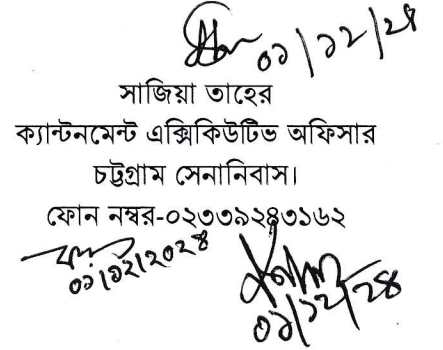 ০১/১২/২৪
সাজিয়া তাহের
ক্যান্টনমেন্ট এক্সিকিউটিভ অফিসার
চট্টগ্রাম সেনানিবাস।
ফোন নম্বর-০২৩৩৯২৪৩১৬২
০১/১২/২০২৪
০১/১২/২৪